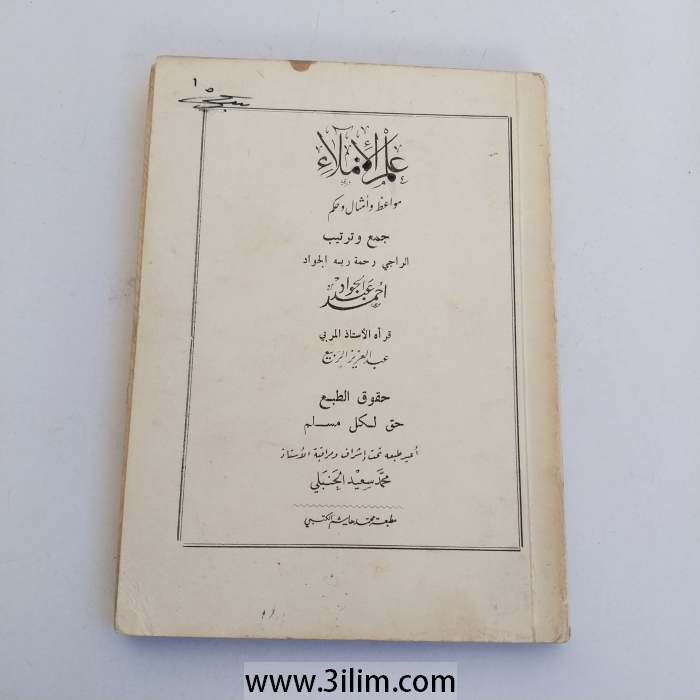 ١
علم الإملاء
مواعظ وأمثال وحكم
جمع وترتيب
الراجي رحمة ربه الجواد
أحمد عبد الجواد
قرأه الأستاذ المربي
عبد العزيز الربيع
حقوق الطبع
حق لكل مسلم
أعيد طبعه تحت إشراف ومراقبة الأستاذ
محمد سعيد الحنبلي
مطبعة محمد هاشم الكتبي
www.3ilim.com